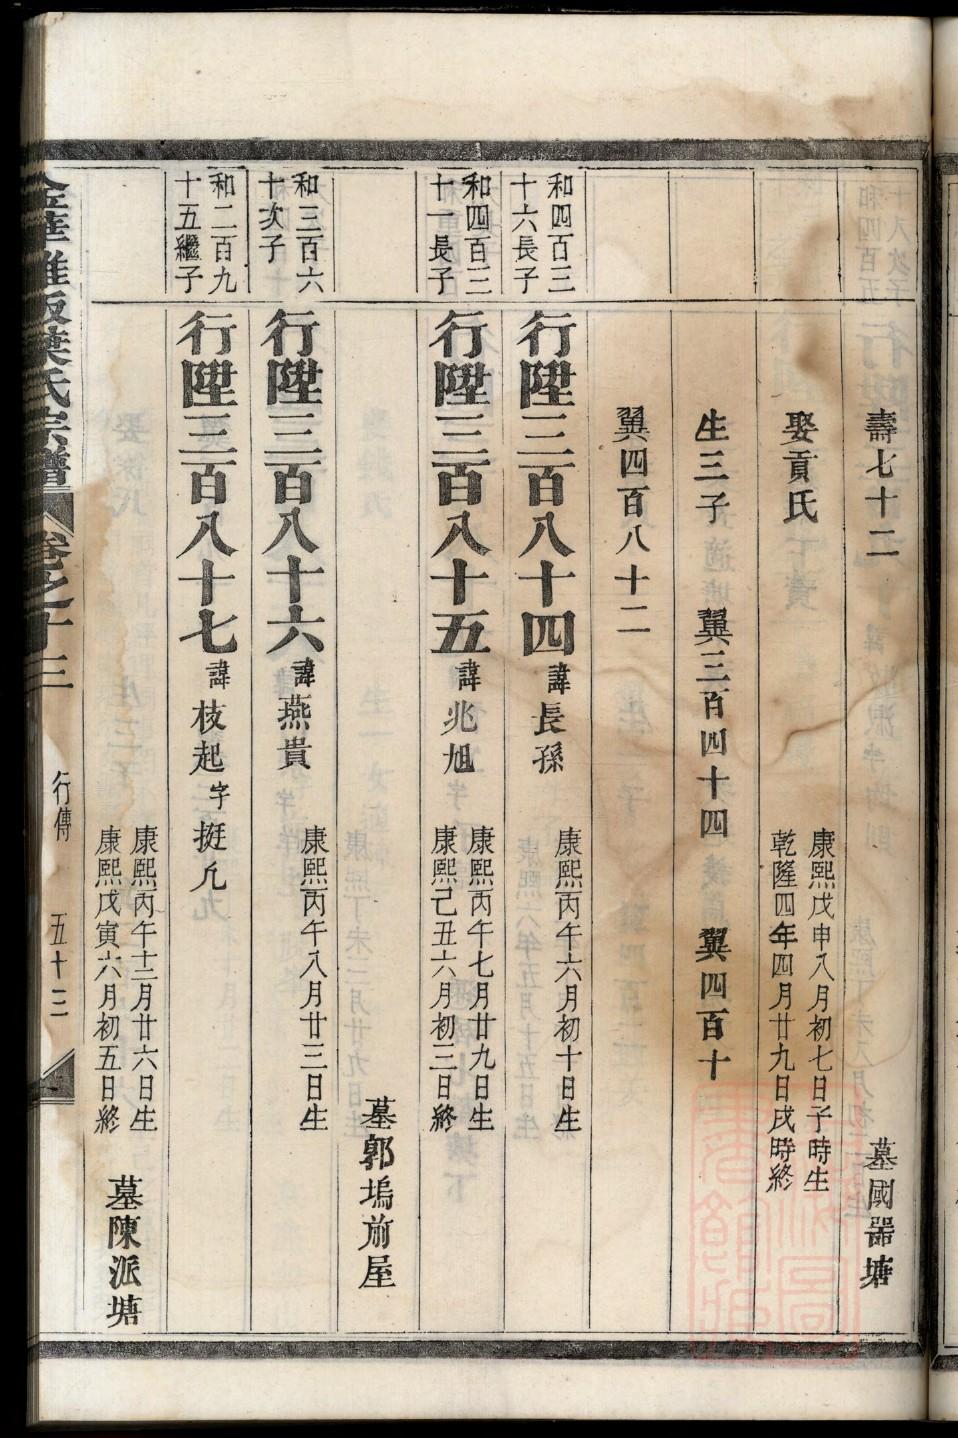 壽七十二
墓國器塘
娶貢氏
康熙戊申八月初七日子時生
乾隆四年四月廿九日戌時終
生三子 翼三百四十四 翼四百十
翼四百八十二
和四百三
十六長子
行陞三百八十四 諱長孫
康熙丙午六月初十日生
和四百三
十一長子
行陞三百八十五 諱兆旭
康熙丙午七月廿九日生
康熙己丑六月初三日終
墓郭塢前屋
和三百六
十次子
行陞三百八十六 諱燕貴
康熙丙午八月廿三日生
和二百九
十五繼子
行陞三百八十七 諱枝起 字挺九
康熙丙午十二月廿六日生
康熙戊寅六月初五日終
墓陳派塘
葉氏宗譜 卷之十三 行傳 五十三